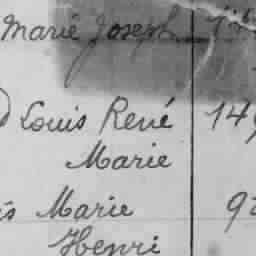 Marie Joseph
Louis René 149
Marie
Marie 92
Henri